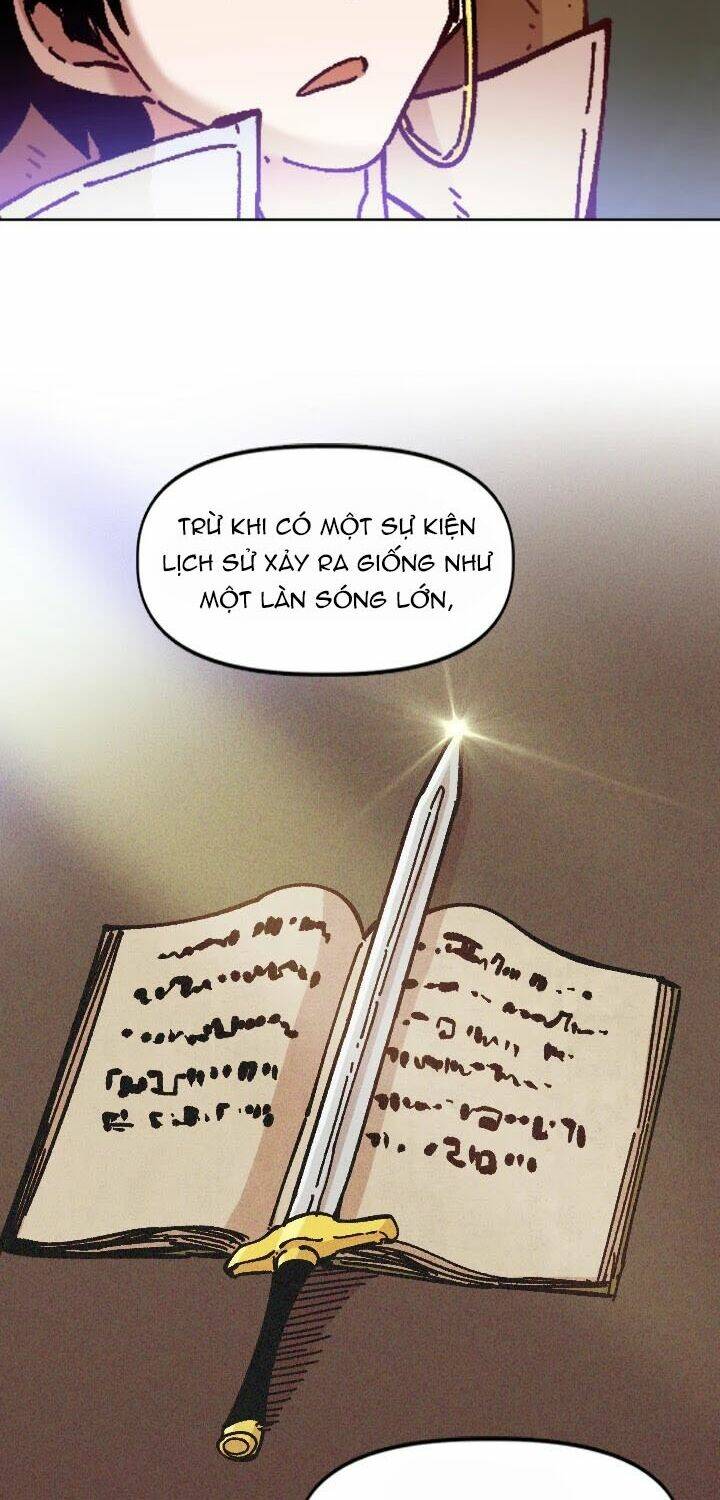 TRỪ KHI CÓ MỘT SỰ KIỆN
LỊCH SỬ XẢY RA GIỐNG NHƯ
MỘT LÀN SÓNG LỚN,